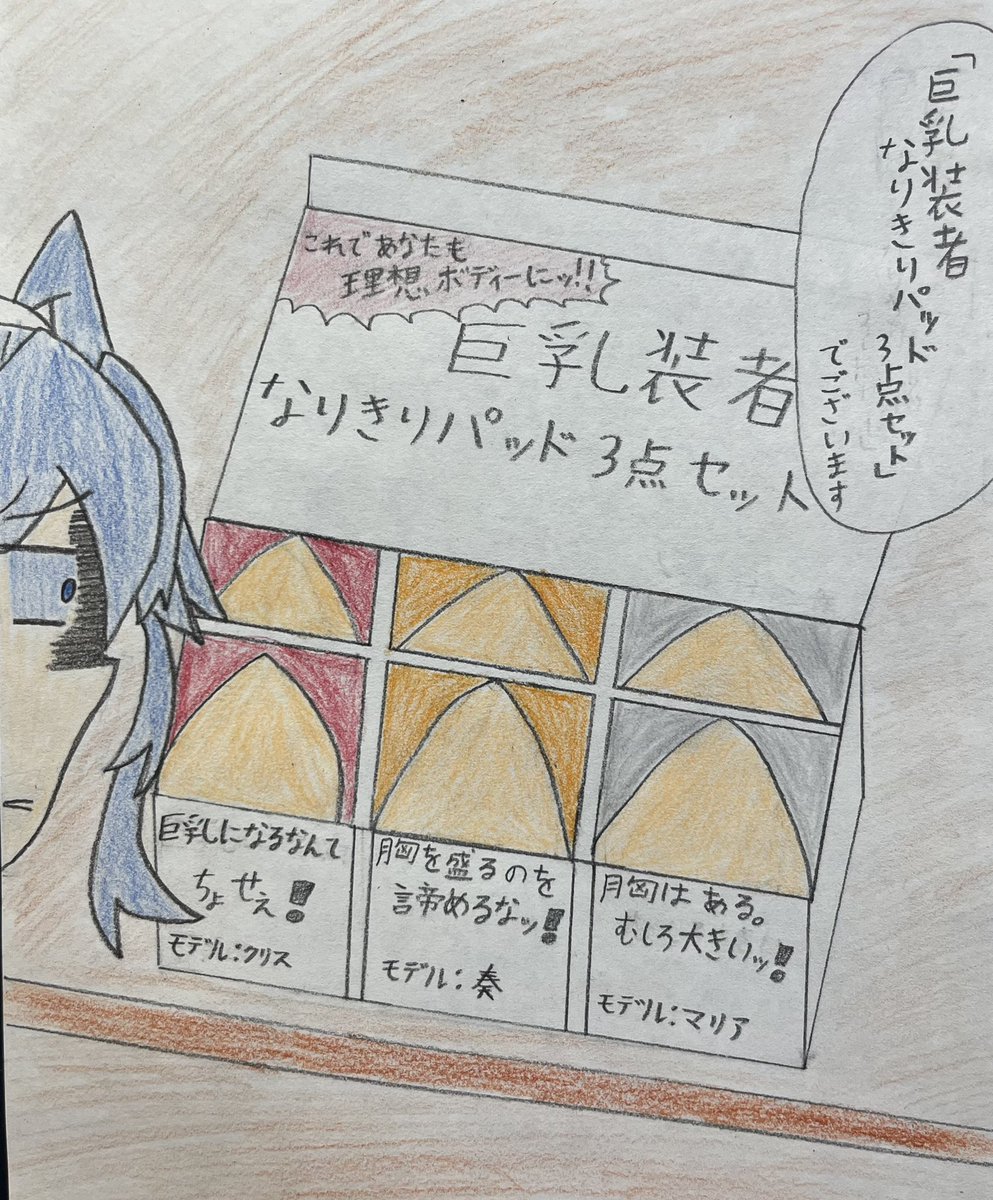 「巨乳装者
なりきりパッド
3点セット」
でございます
これであなたも
理想ボディーにッ!!
巨乳装者
なりきりパッド3点セット
巨乳しになるなんて
ちょせえ!
モデル:クリス
胸を盛るのを
諦めるなッ!
モデル:奏
胸はある。
むしろ大きいッ!
モデル:マリア